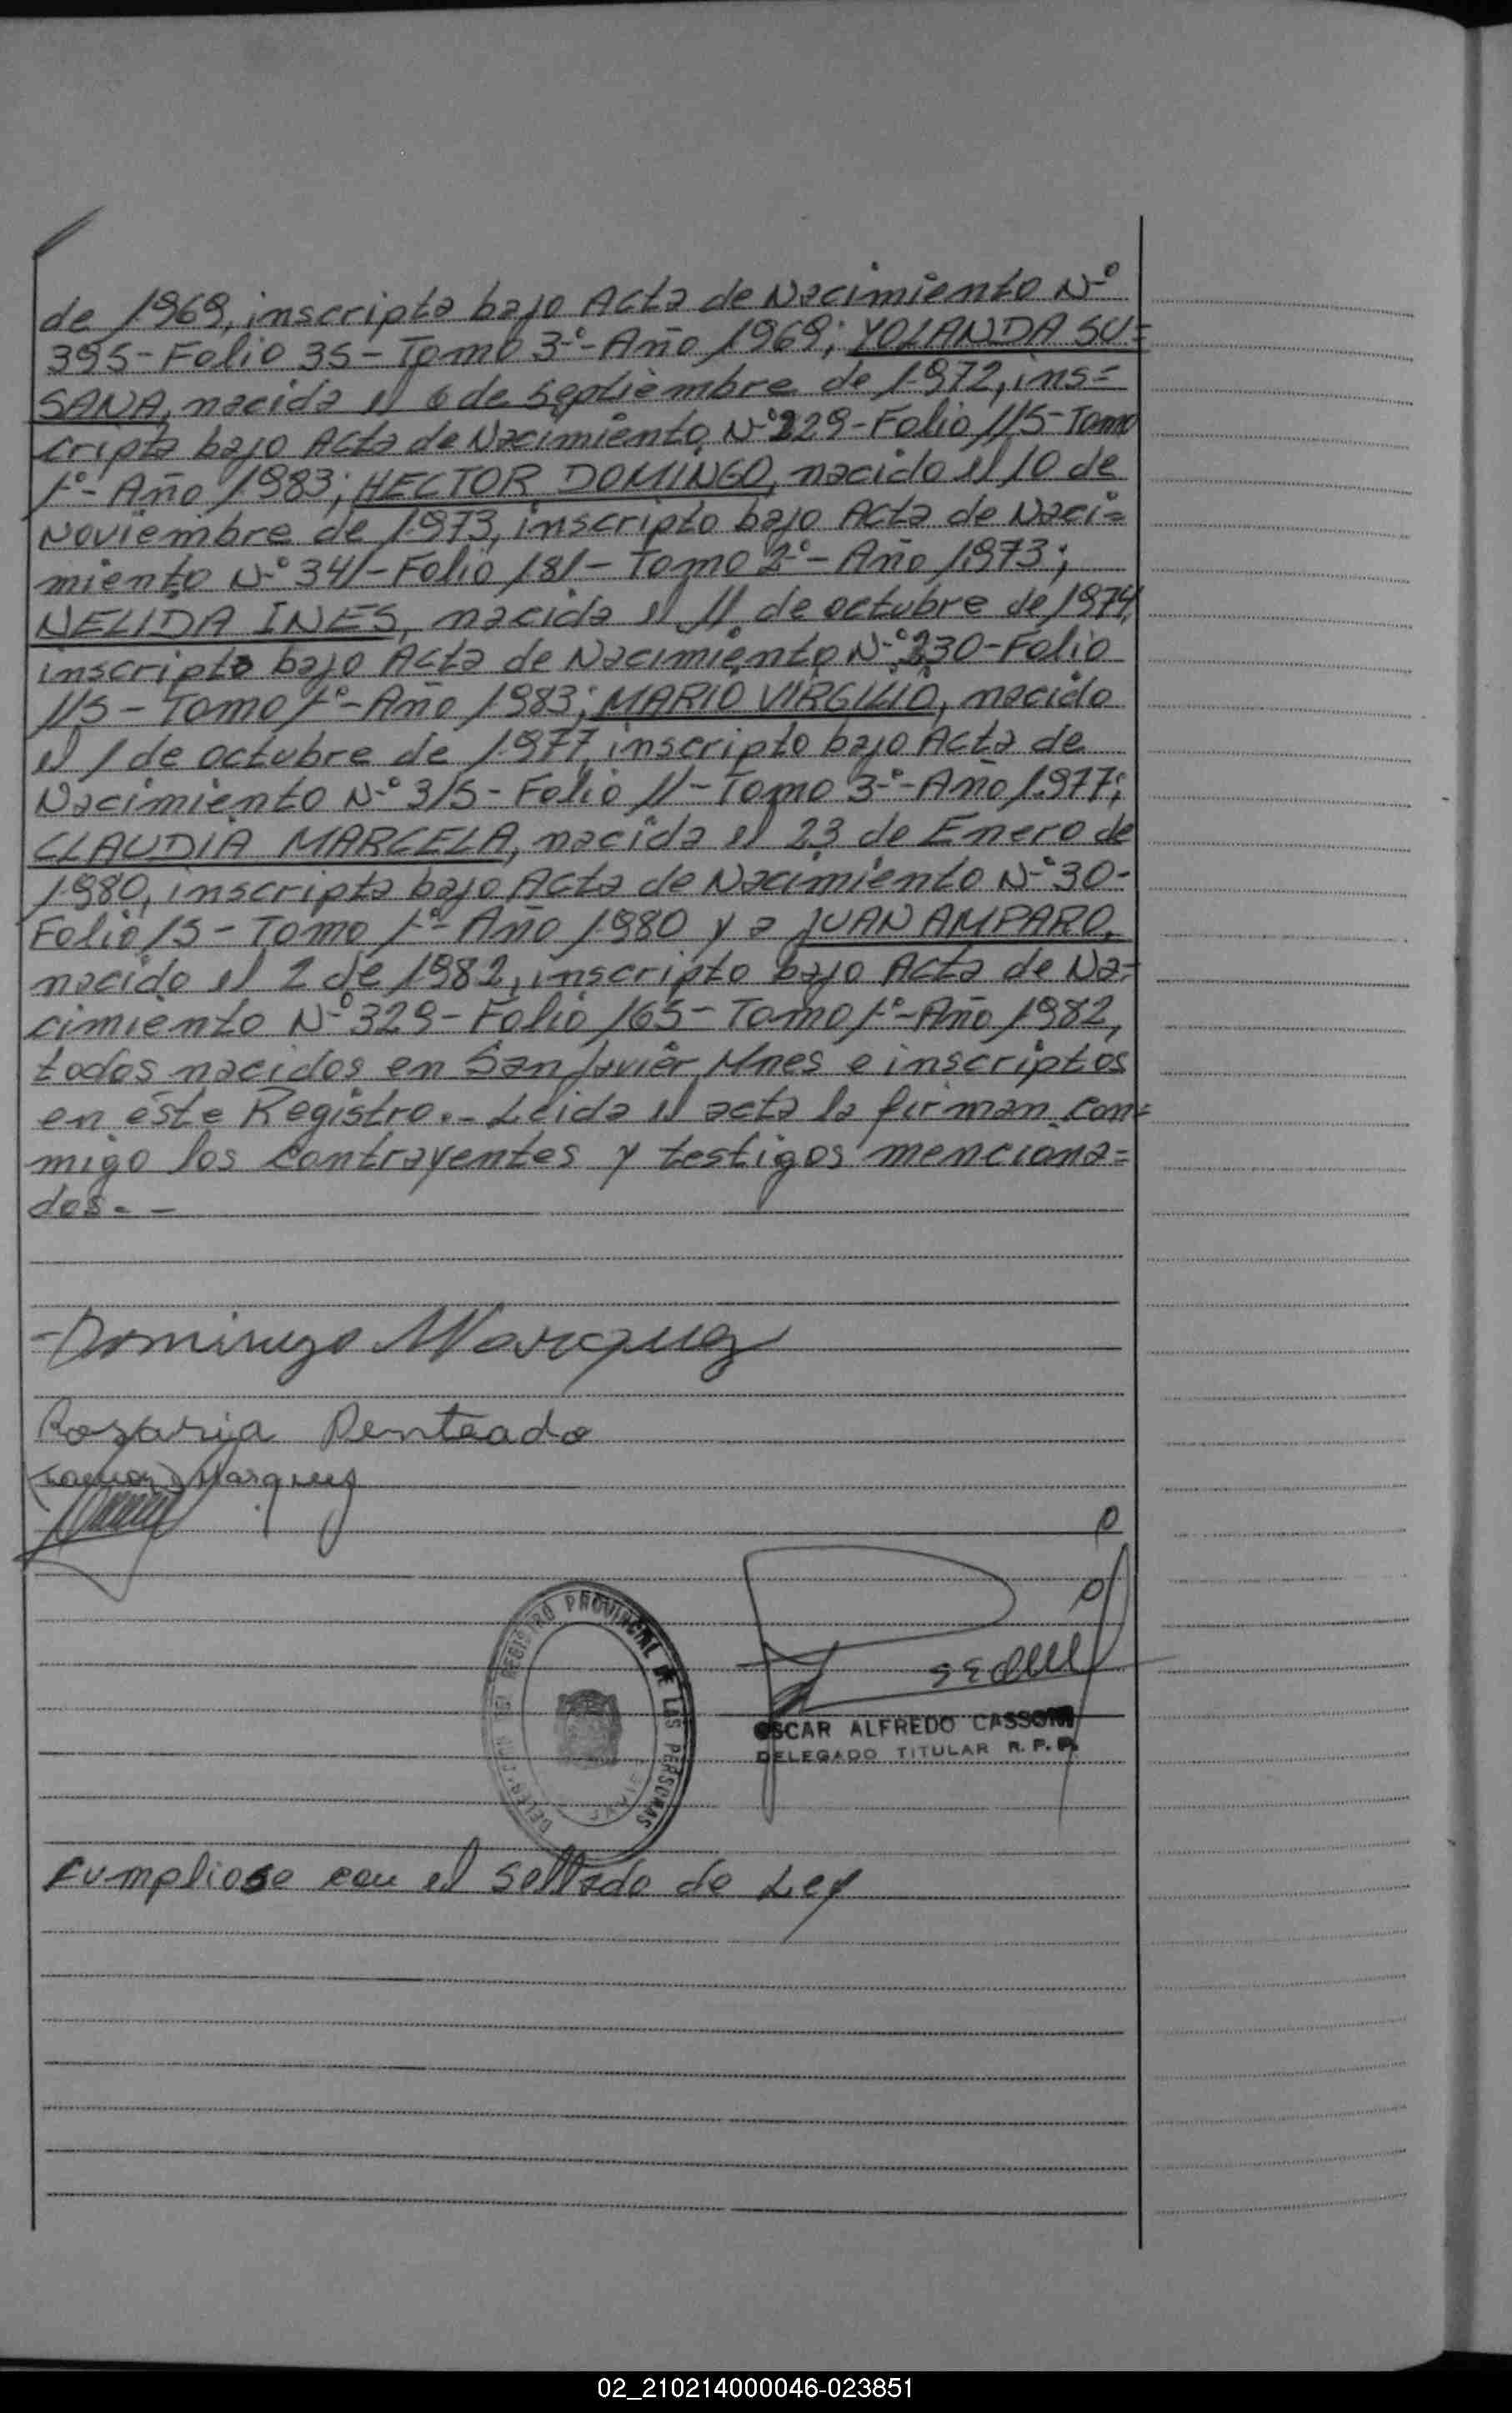 de 1969, inscripta bajo Acta de Nacimiento N-º
395- Folio 35- Tomo 3-º- Año 1969; YOLANDA SU=
SANA, nacida el 6 de septiembre de 1972, ins=
cripta bajo Acta de Nacimiento N-º 229- Folio 115- Tomo
1-º- Año 1983; HECTOR DOMINGO, nacido el 10 de
Noviembre de 1973, inscripto bajo Acta de Naci=
miento N-º 341- Folio 181- Tomo 2-º- Año 1973;
NELIDA INES, nacida el 11 de octubre de 1974,
inscripta bajo Acta de Nacimiento N-º 230- Folio
115- Tomo 1-º- Año 1983; MARIO VIRGILIO, nacido
el 1 de octubre de 1977, inscripto bajo Acta de
Nacimiento N-º 315- Folio 11- Tomo 3-º- Año 1977;
CLAUDIA MARCELA, nacida el 23 de Enero de
1980, inscripta bajo Acta de Nacimiento N-º 30-
Folio 15- Tomo 1-º- Año 1980 y a JUAN AMPARO,
nacido el 2 de 1982, inscripto bajo Acta de Na=
cimiento N-º 329- Folio 165- Tomo 1-º- Año 1982,
todos nacidos en San Javier, Mnes e inscriptos
en éste Registro.- Leida el acta la firman con=
migo los contrayentes y testigos menciona=
dos.-
Domingo Marquez
Rozaria Penteado
Marquez
REGISTRO PROVINCIAL DE LAS PERSONAS
OSCAR ALFREDO CASSONI
DELEGADO TITULAR R. P. P.
Cumpliose con el Sellado de Ley
02_210214000046-023851